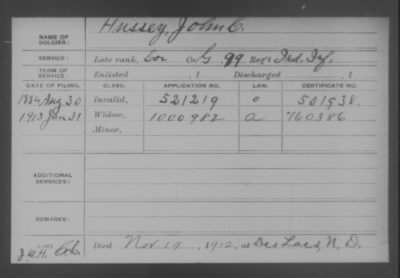 Hussey, John C.
NAME OF SOLDIER:
SERVICE: Late rank, Cor Co. G, 99 Reg't Ind. Inf.
TERM OF SERVICE: Enlisted , 1 Discharged , 1
DATE OF FILING. CLASS. APPLICATION NO. LAW. CERTIFICATE NO.
1884 Aug 30 Invalid, 521219 501538.
1913 Jan 31 Widow, 1000982 a 760386
Minor,
ADDITIONAL SERVICES:
REMARKS:
J.W.H. Died Nov 19, 1912, at Des Lacs, N. D.